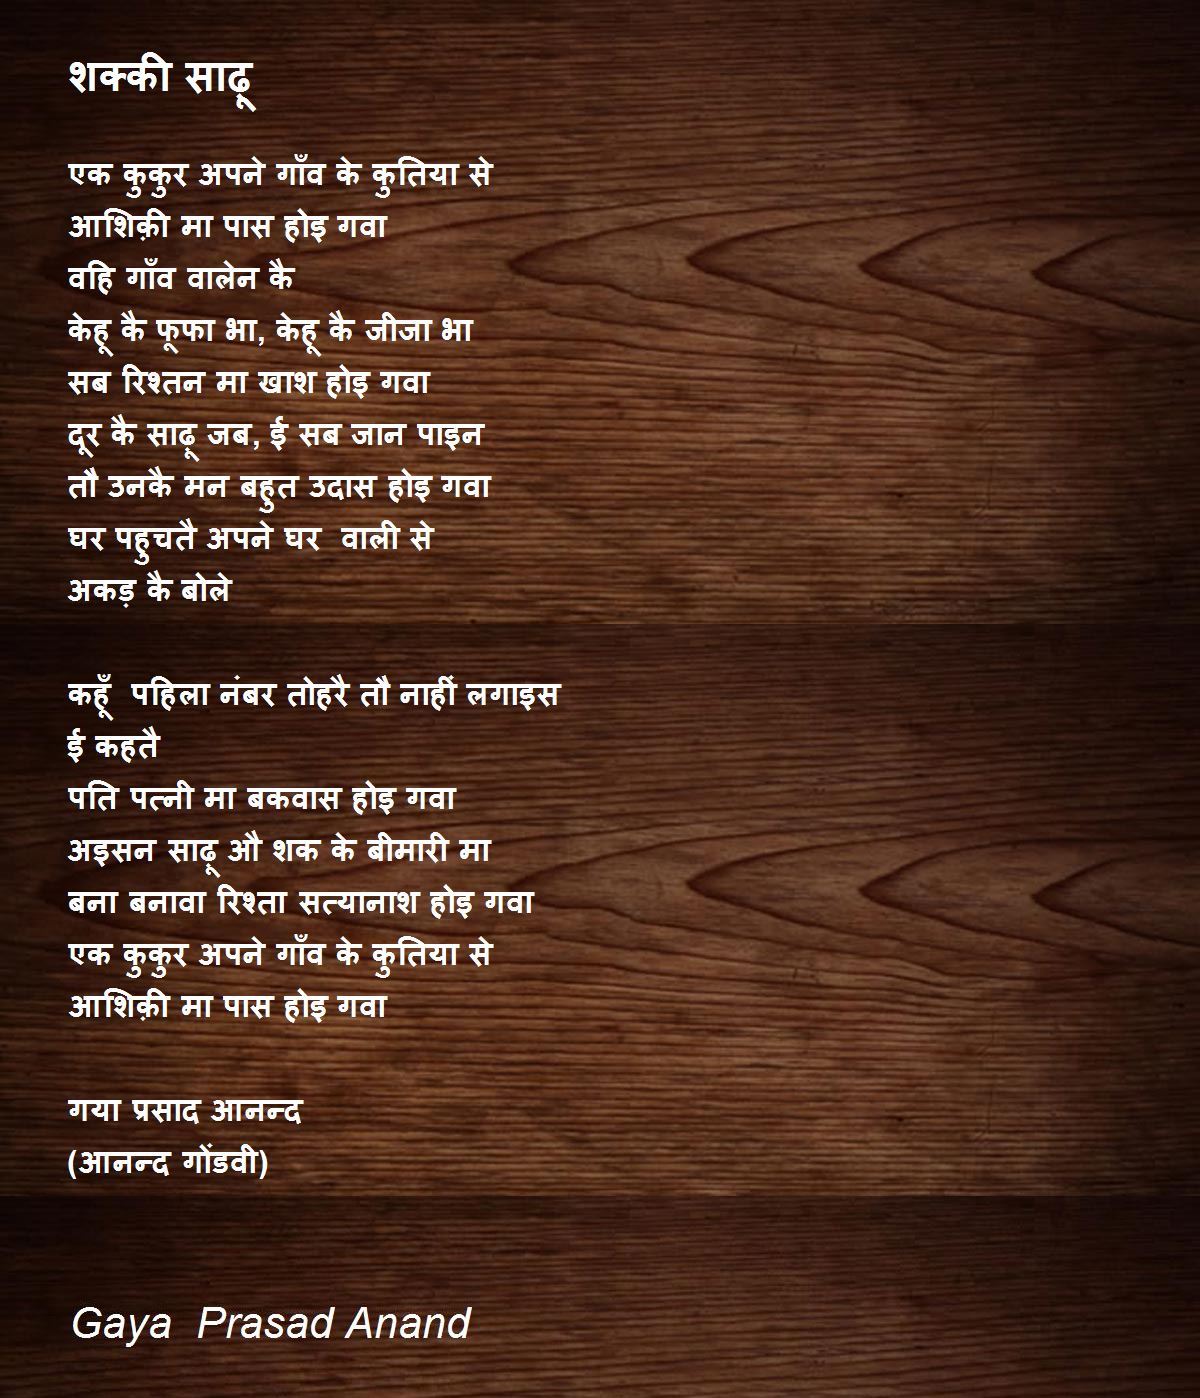 शक्की साढ़ू
एक कुकुर अपने गाँव के कुतिया से
आशिक़ी मा पास होइ गवा
वहि गाँव वालेन कै
केहू कै फूफा भा, केहू कै जीजा भा
सब रिश्तन मा खाश होइ गवा
दूर कै साढ़ू जब, ई सब जान पाइन
तौ उनकै मन बहुत उदास होइ गवा
घर पहुचतै अपने घर  वाली से
अकड़ कै बोले
कहूँ  पहिला नंबर तोहरै तौ नाहीं लगाइस
ई कहतै
पति पत्नी मा बकवास होइ गवा
अइसन साढ़ू औ शक के बीमारी मा
बना बनावा रिश्ता सत्यानाश होइ गवा
एक कुकुर अपने गाँव के कुतिया से
आशिक़ी मा पास होइ गवा
गया प्रसाद आनन्द
(आनन्द गोंडवी)
Gaya  Prasad Anand